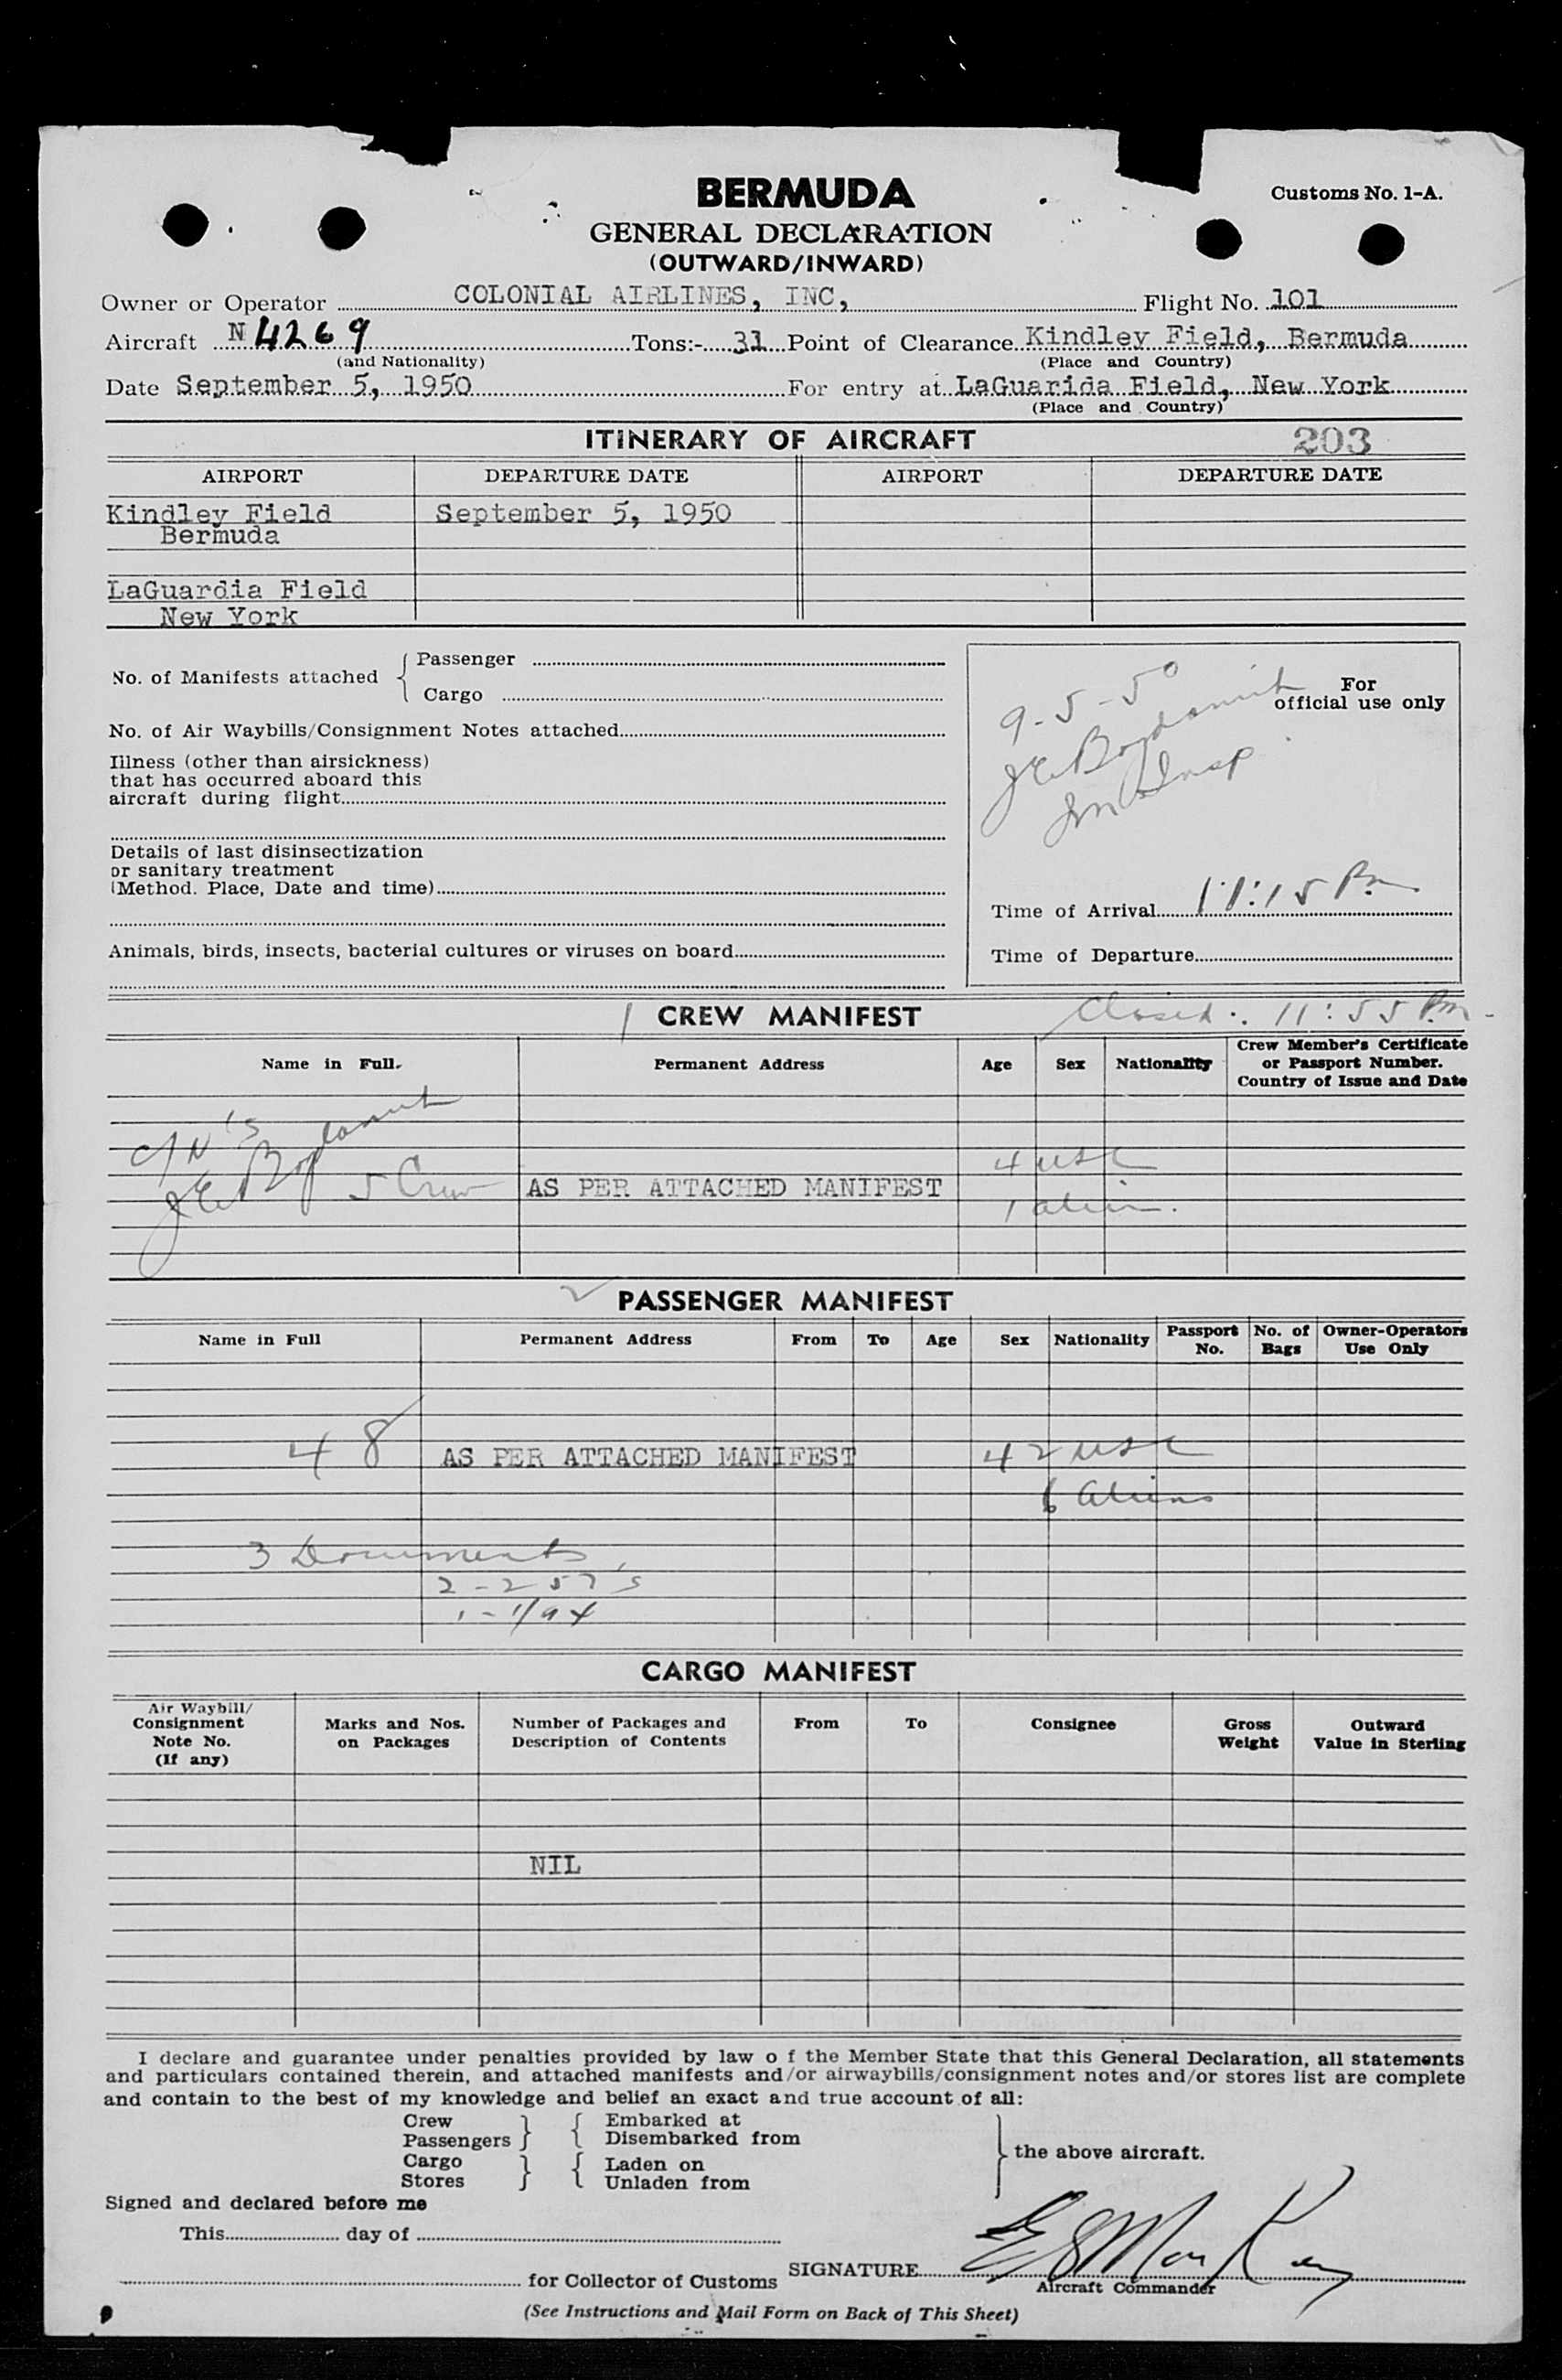 BERMUDA
Customs No. 1-A.
GENERAL DECLARATION
(OUTWARD/INWARD)
Owner or Operator COLONIAL AIRLINES, INC, Flight No. 101
Aircraft N4269 Tons:- 31 Point of Clearance Kindley Field, Bermuda
(and Nationality) (Place and Country)
Date September 5, 1950 For entry at LaGuarida Field, New York
(Place and Country)
ITINERARY OF AIRCRAFT 203
AIRPORT DEPARTURE DATE AIRPORT DEPARTURE DATE
Kindley Field September 5, 1950
Bermuda
LaGuardia Field
New York
No. of Manifests attached { Passenger
Cargo
No. of Air Waybills/Consignment Notes attached
Illness (other than airsickness)
that has occurred aboard this
aircraft during flight
Details of last disinsectization
or sanitary treatment
(Method. Place, Date and time)
Animals, birds, insects, bacterial cultures or viruses on board
For
official use only
9-5-50
Insp
Time of Arrival 11:15 Pm
Time of Departure
CREW MANIFEST
Closed: 11:55 Pm
Name in Full. Permanent Address Age Sex Nationality Crew Member's Certificate
or Passport Number.
Country of Issue and Date
5 Crew AS PER ATTACHED MANIFEST
4 USC
1 alien.
PASSENGER MANIFEST
Name in Full Permanent Address From To Age Sex Nationality Passport No. No. of Bags Owner-Operators Use Only
48 AS PER ATTACHED MANIFEST 42 USC
6 Aliens
3 Documents
2-257's
CARGO MANIFEST
Air Waybill/
Consignment
Note No.
(If any)
Marks and Nos.
on Packages
Number of Packages and
Description of Contents
From
To
Consignee
Gross
Weight
Outward
Value in Sterling
NIL
I declare and guarantee under penalties provided by law o f the Member State that this General Declaration, all statements
and particulars contained therein, and attached manifests and/or airwaybills/consignment notes and/or stores list are complete
and contain to the best of my knowledge and belief an exact and true account of all:
Crew } { Embarked at
Passengers } { Disembarked from
} the above aircraft.
Cargo } { Laden on
Stores } { Unladen from
Signed and declared before me
This day of
SIGNATURE
for Collector of Customs
Aircraft Commander
(See Instructions and Mail Form on Back of This Sheet)